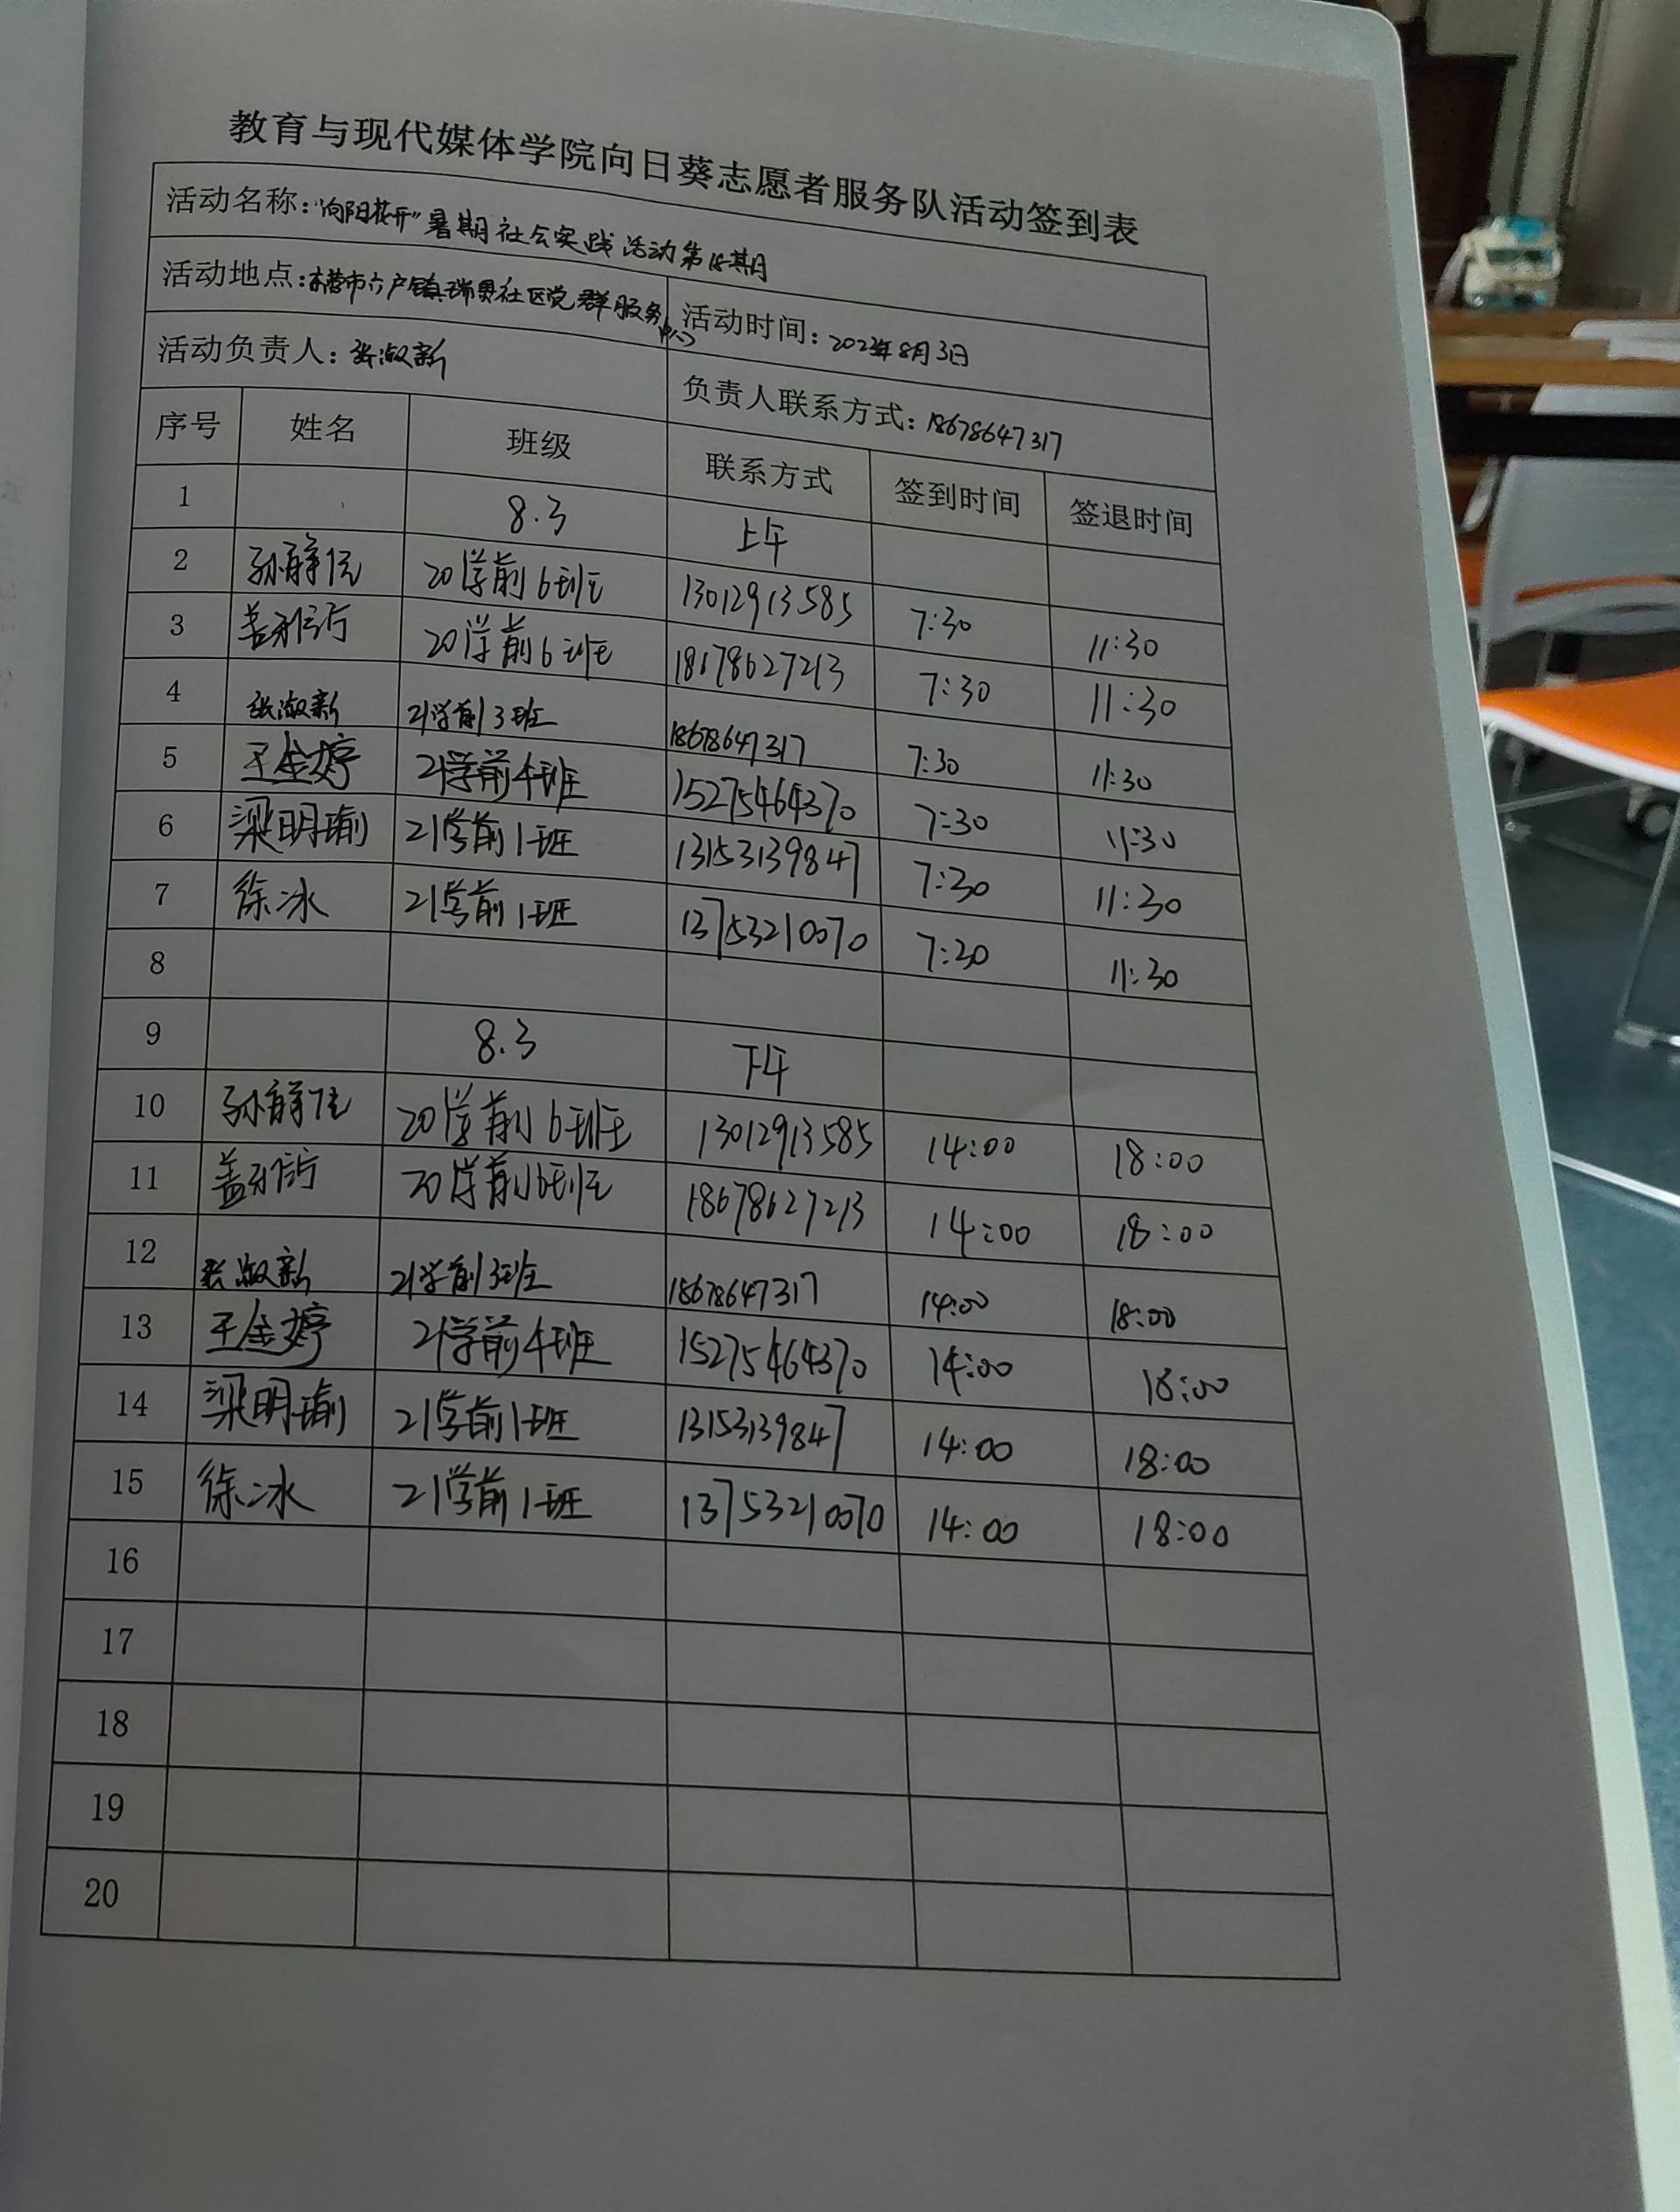 教育与现代媒体学院向日葵志愿者服务队活动签到表
活动名称：“向阳花开”暑期社会实践活动第18期
活动地点：东营市六户镇瑞景社区党群服务中心 活动时间：2023年8月3日
活动负责人：张淑新 负责人联系方式：18678647317
序号 姓名 班级 联系方式 签到时间 签退时间
1 8.3 上午
2 孙静 20学前6班 13012913585 7:30 11:30
3 盖 20学前6班 18678627213 7:30 11:30
4 张淑新 21学前3班 18678647317 7:30 11:30
5 王金婷 21学前4班 15275464370 7:30 11:30
6 梁明瑜 21学前1班 13153139847 7:30 11:30
7 徐冰 21学前1班 13753210070 7:30 11:30
8
9 8.3 下午
10 孙静 20学前6班 13012913585 14:00 18:00
11 盖 20学前6班 18678627213 14:00 18:00
12 张淑新 21学前3班 18678647317 14:00 18:00
13 王金婷 21学前4班 15275464370 14:00 18:00
14 梁明瑜 21学前1班 13153139847 14:00 18:00
15 徐冰 21学前1班 13753210070 14:00 18:00
16
17
18
19
20